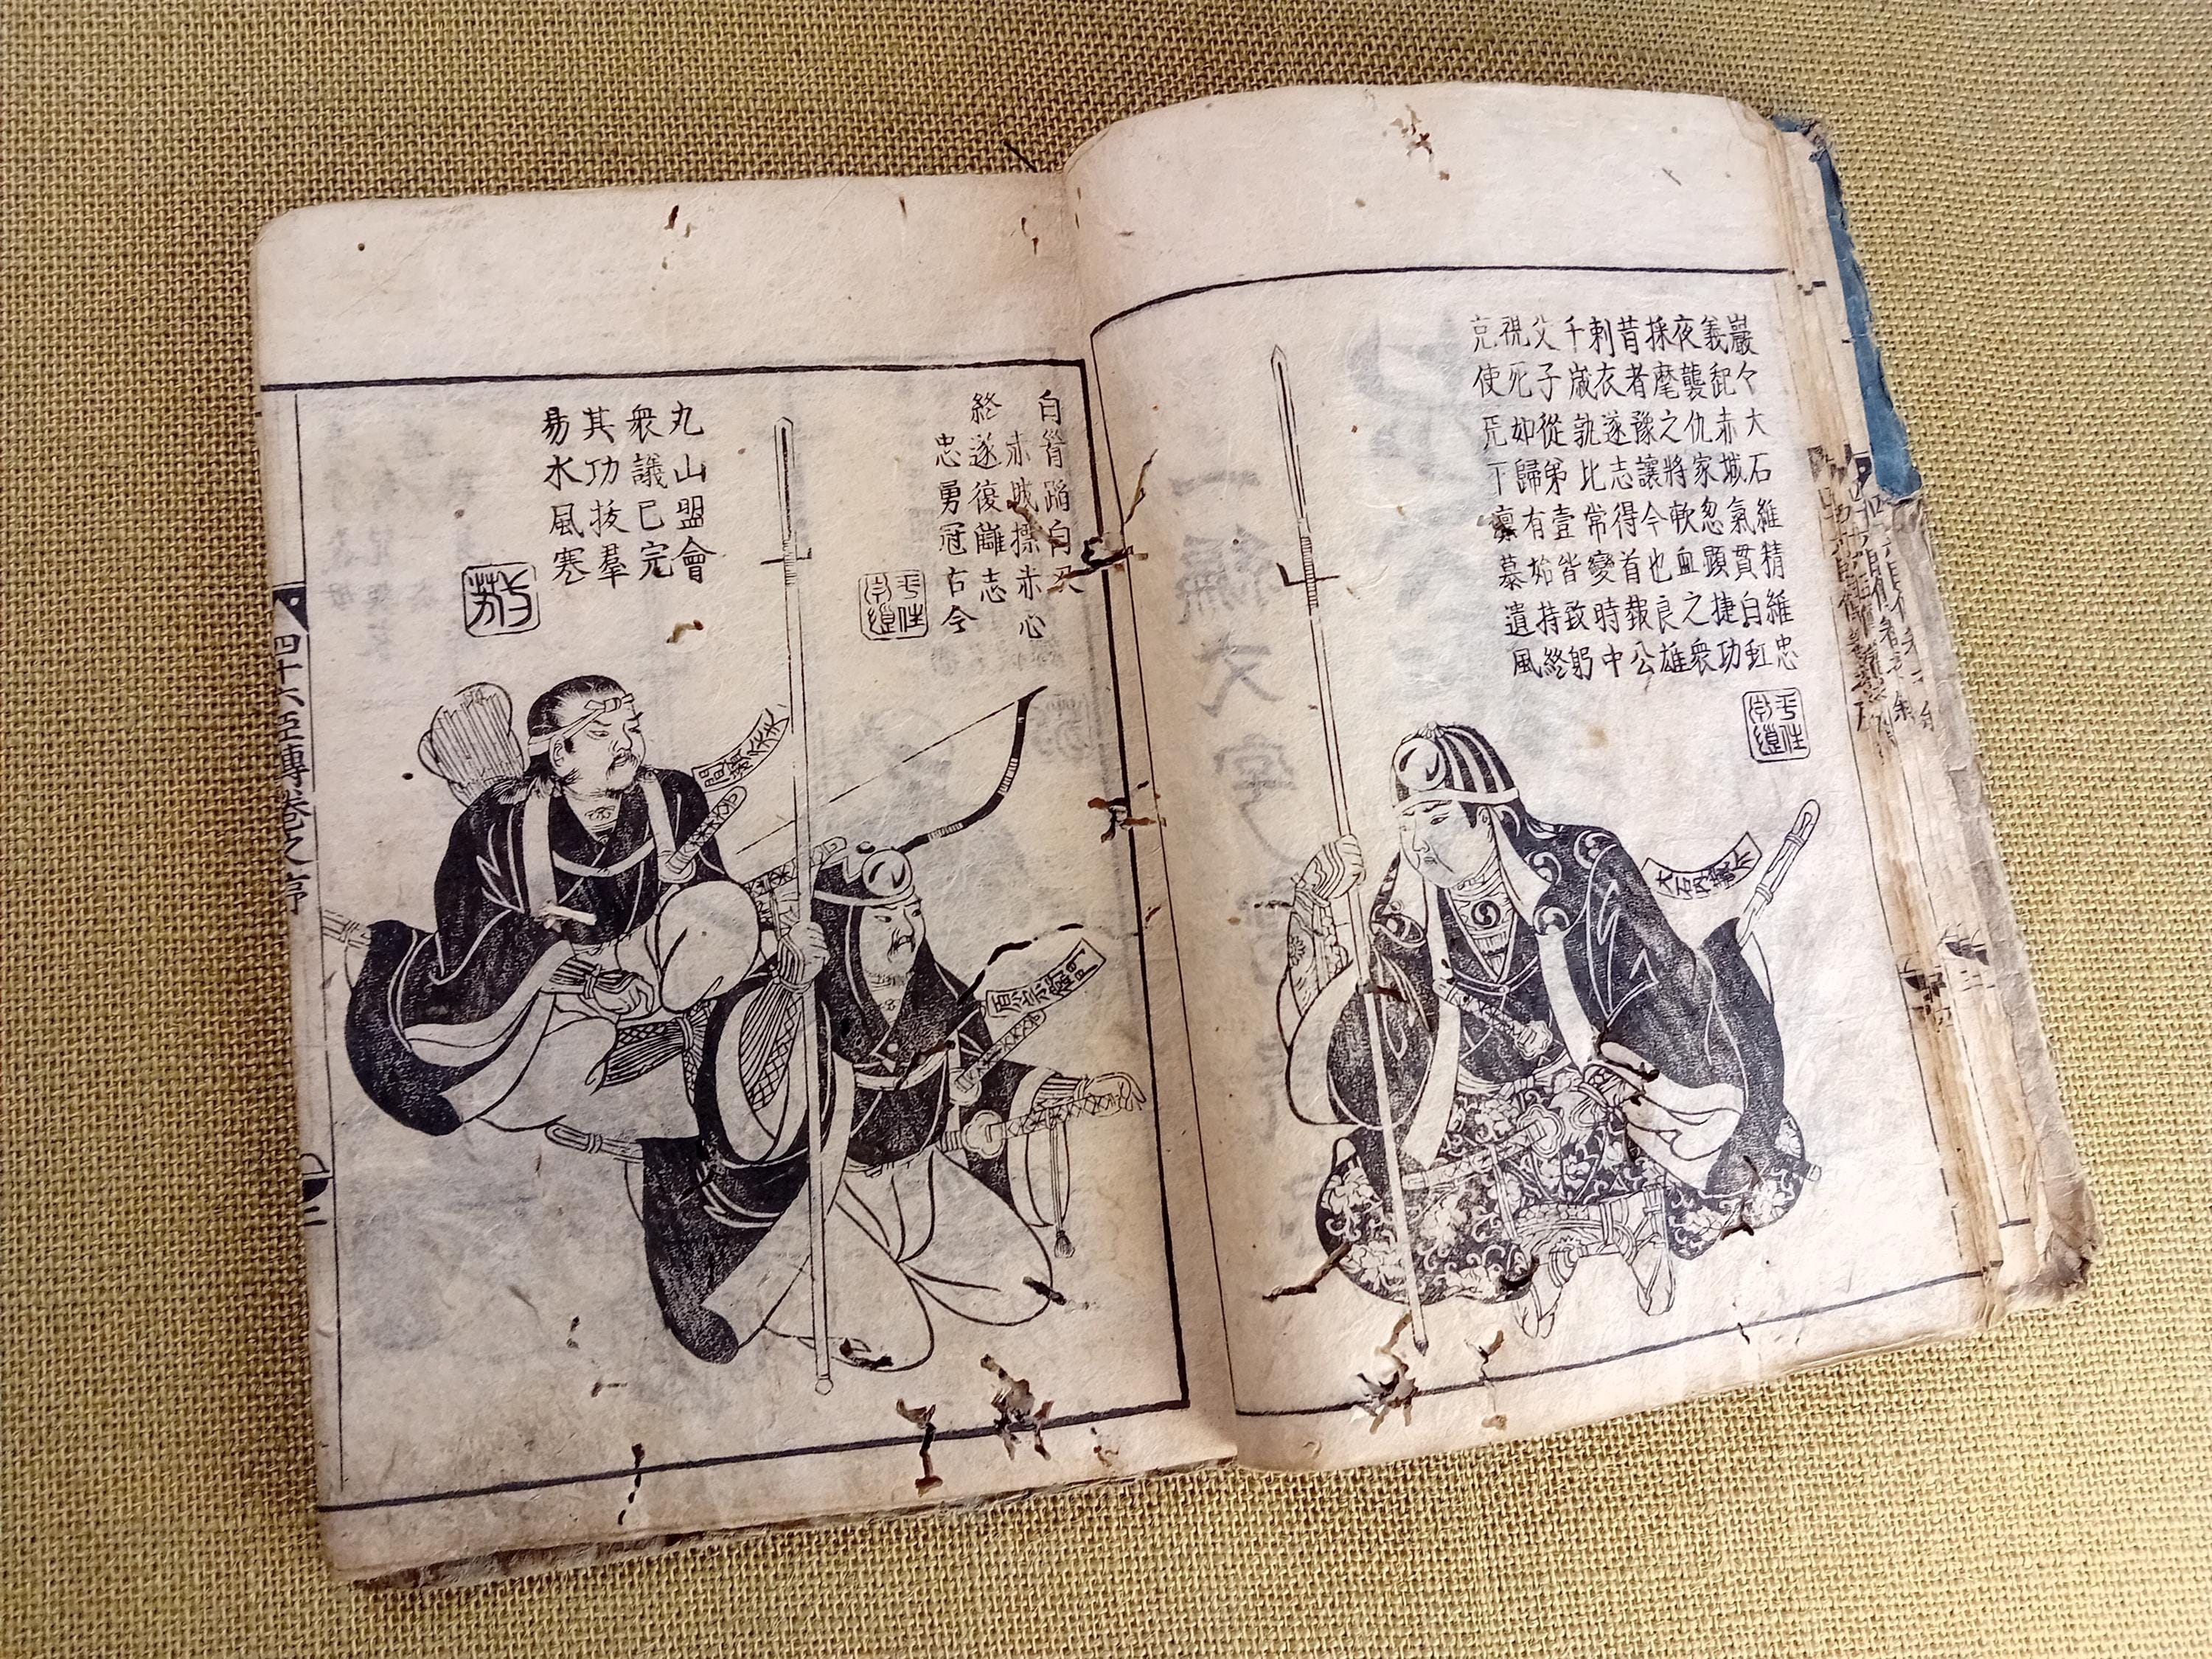 巖々大石維精維忠
義起赤城氣貫白虹
夜襲仇家忽顯捷功
採麾之將歃血之衆
昔者豫讓今也良雄
刺衣遂志得首報公
千歳孰比常變時中
父子從弟壹皆致躬
視死如歸有始持終
克使下凛慕遺風
大石内
白首蹈白刃
赤城操赤心
終遂復讎志
忠勇冠古今
衛門
丸山盟會
衆議已完
其功拔羣
易水風寒
間瀬久太夫
四十六臣傳巻之序
二